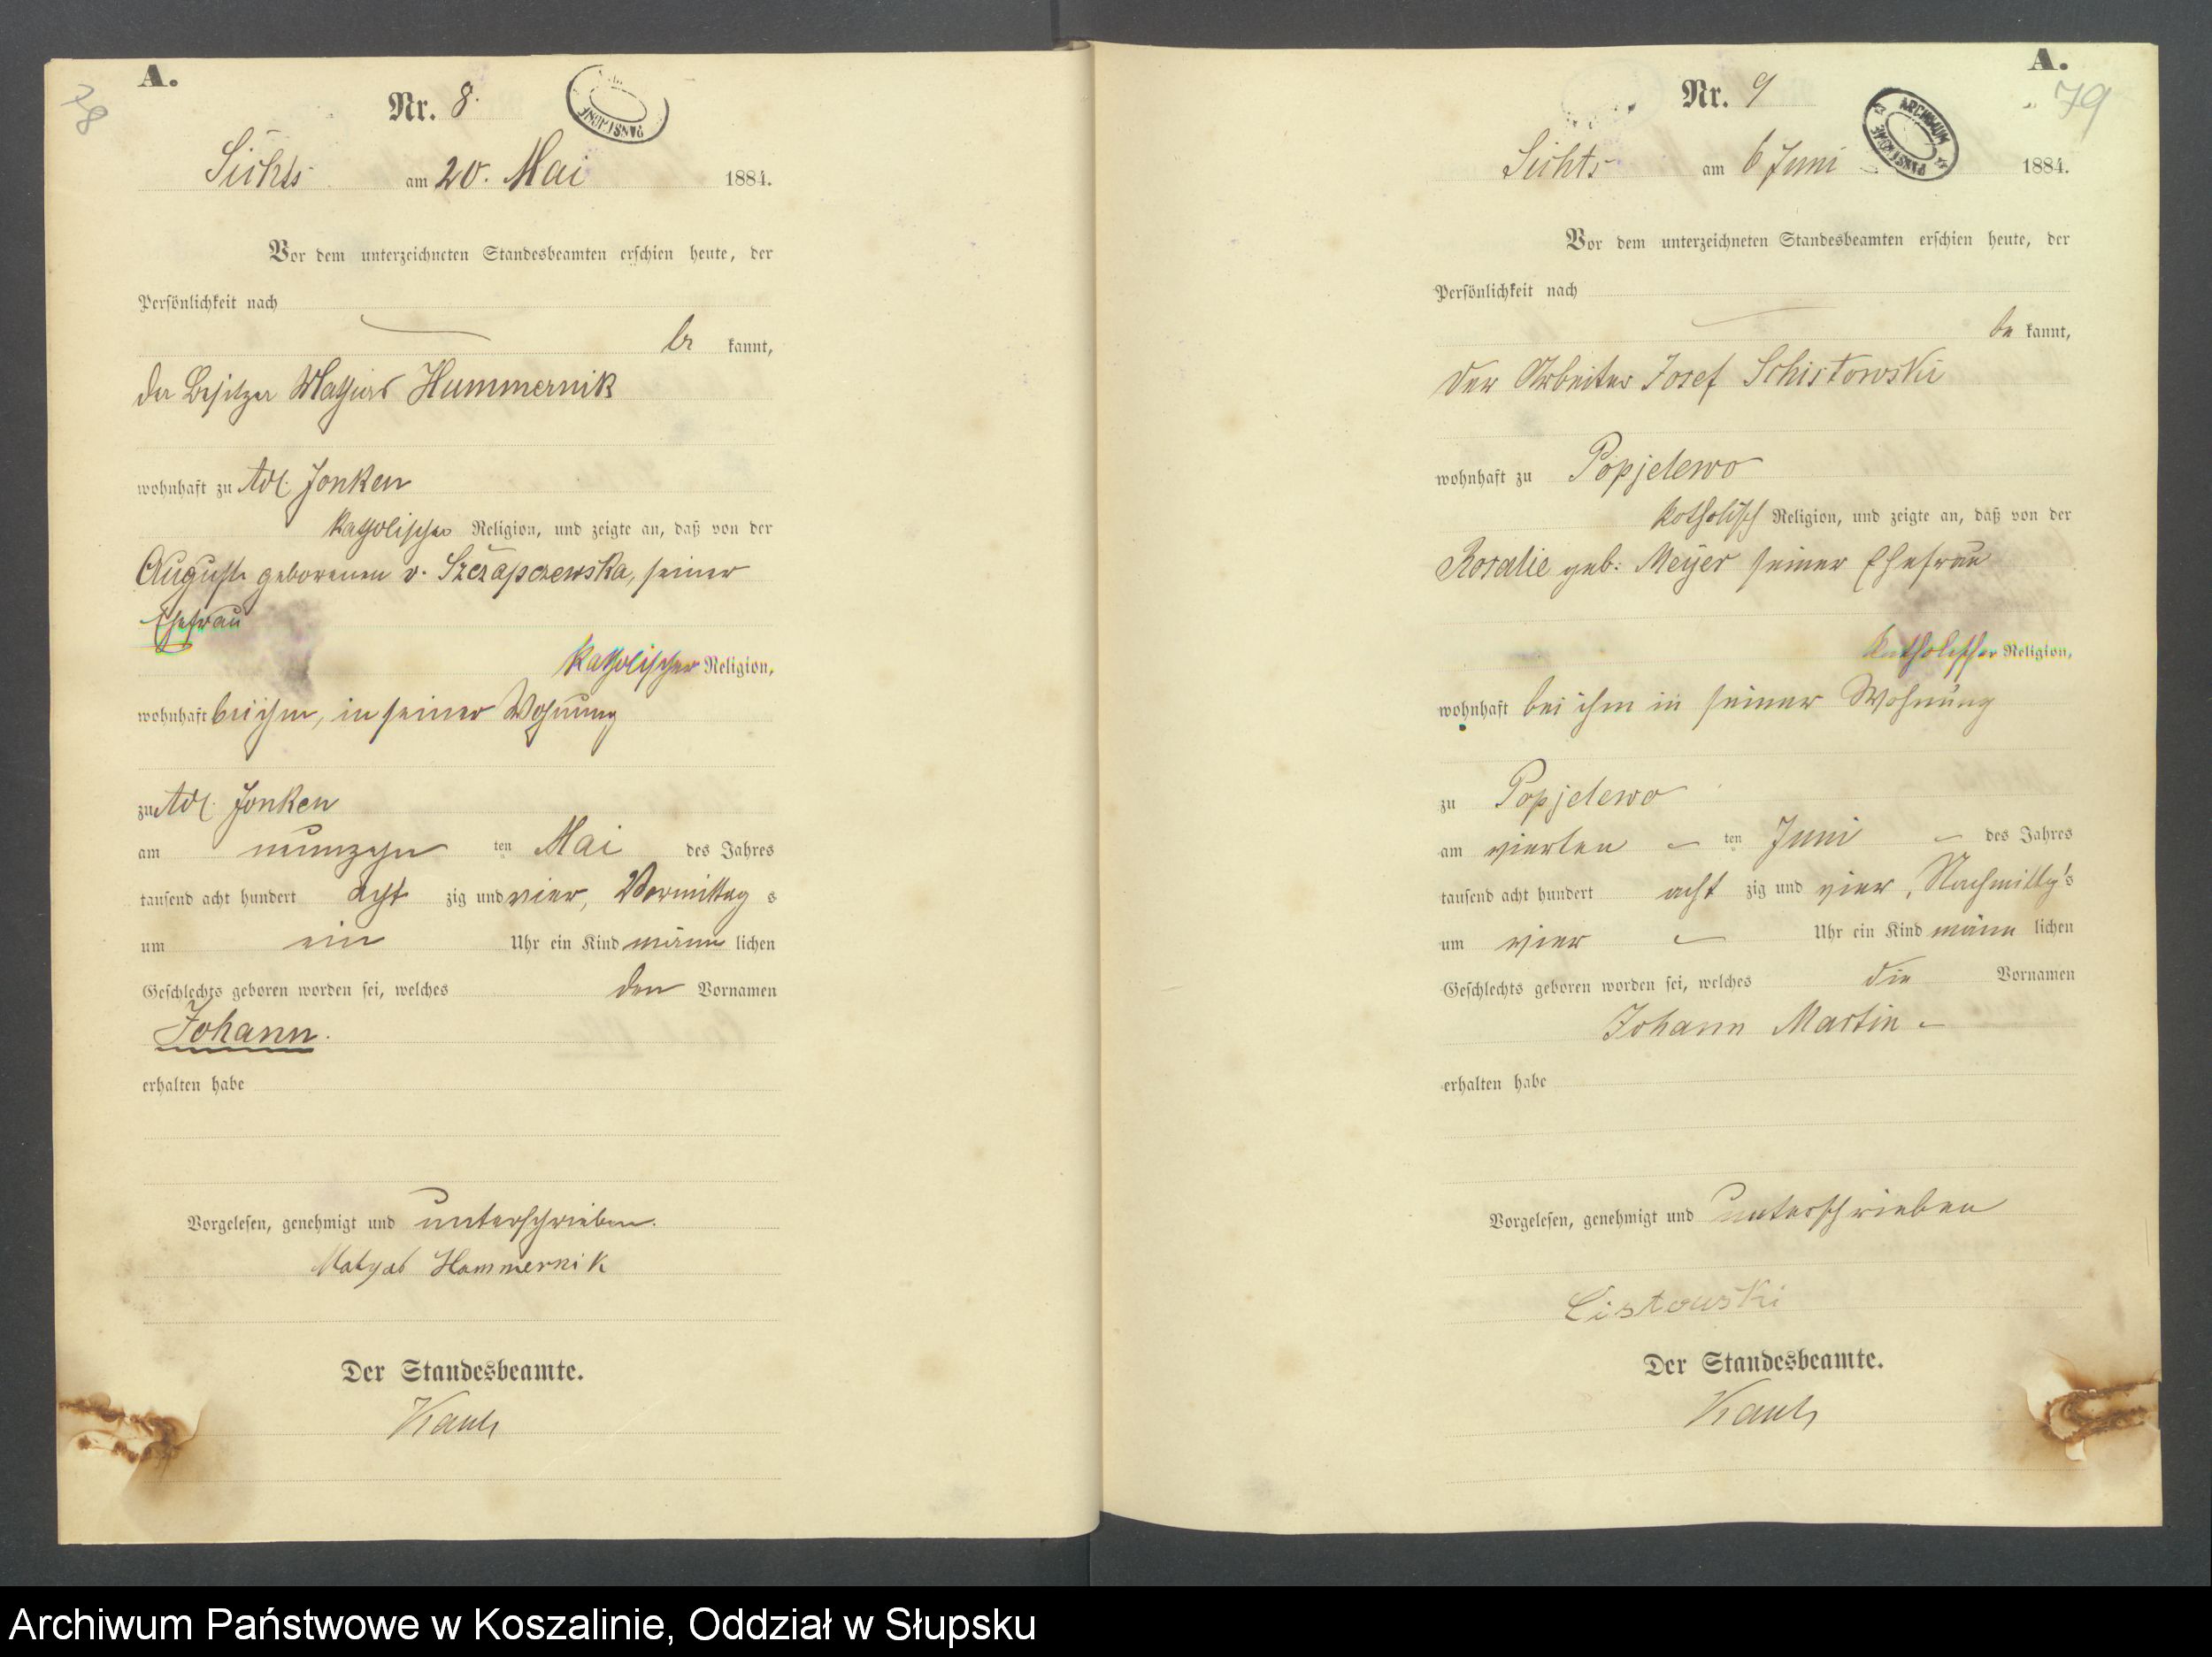 78
A.
Nr. 8.
Sichts am 20. Mai 1884.
Vor dem unterzeichneten Standesbeamten erschien heute, der
Persönlichkeit nach
be kannt,
der Besitzer Mathias Hammernik
wohnhaft zu Adl. Jonken
katholischer Religion, und zeigte an, daß von der
Auguste geborenen v. Szczapczewska, seiner
Ehefrau
katholischer Religion,
wohnhaft bei ihm, in seiner Wohnung
zu Adl. Jonken
am neunzehn ten Mai des Jahres
tausend acht hundert acht zig und vier, Vormittag s
um ein Uhr ein Kind männ lichen
Geschlechts geboren worden sei, welches den Vornamen
Johann.
erhalten habe
Vorgelesen, genehmigt und unterschrieben.
Matyas Hammernik
Der Standesbeamte.
A.
79
Nr. 9
ARCHIWUM PAŃSTWOWE
Sichts am 6 Juni 1884.
Vor dem unterzeichneten Standesbeamten erschien heute, der
Persönlichkeit nach
be kannt,
der Arbeiter Josef Schistowski
wohnhaft zu Popjelewo
katholisch Religion, und zeigte an, daß von der
Rosalie geb. Meyer seiner Ehefrau
katholischer Religion,
wohnhaft bei ihm in seiner Wohnung
zu Popjelewo
am vierten ten Juni des Jahres
tausend acht hundert acht zig und vier, Nachmittg's
um vier Uhr ein Kind männ lichen
Geschlechts geboren worden sei, welches die Vornamen
Johann Martin
erhalten habe
Vorgelesen, genehmigt und unterschrieben
Cistowski
Der Standesbeamte.
Archiwum Państwowe w Koszalinie, Oddział w Słupsku